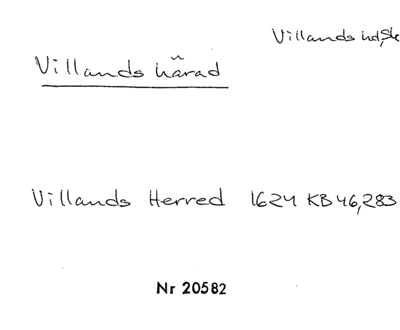 Villands hd, Sk
Villands härad
Villands Herred 1624 KB 46,283
Nr 20582